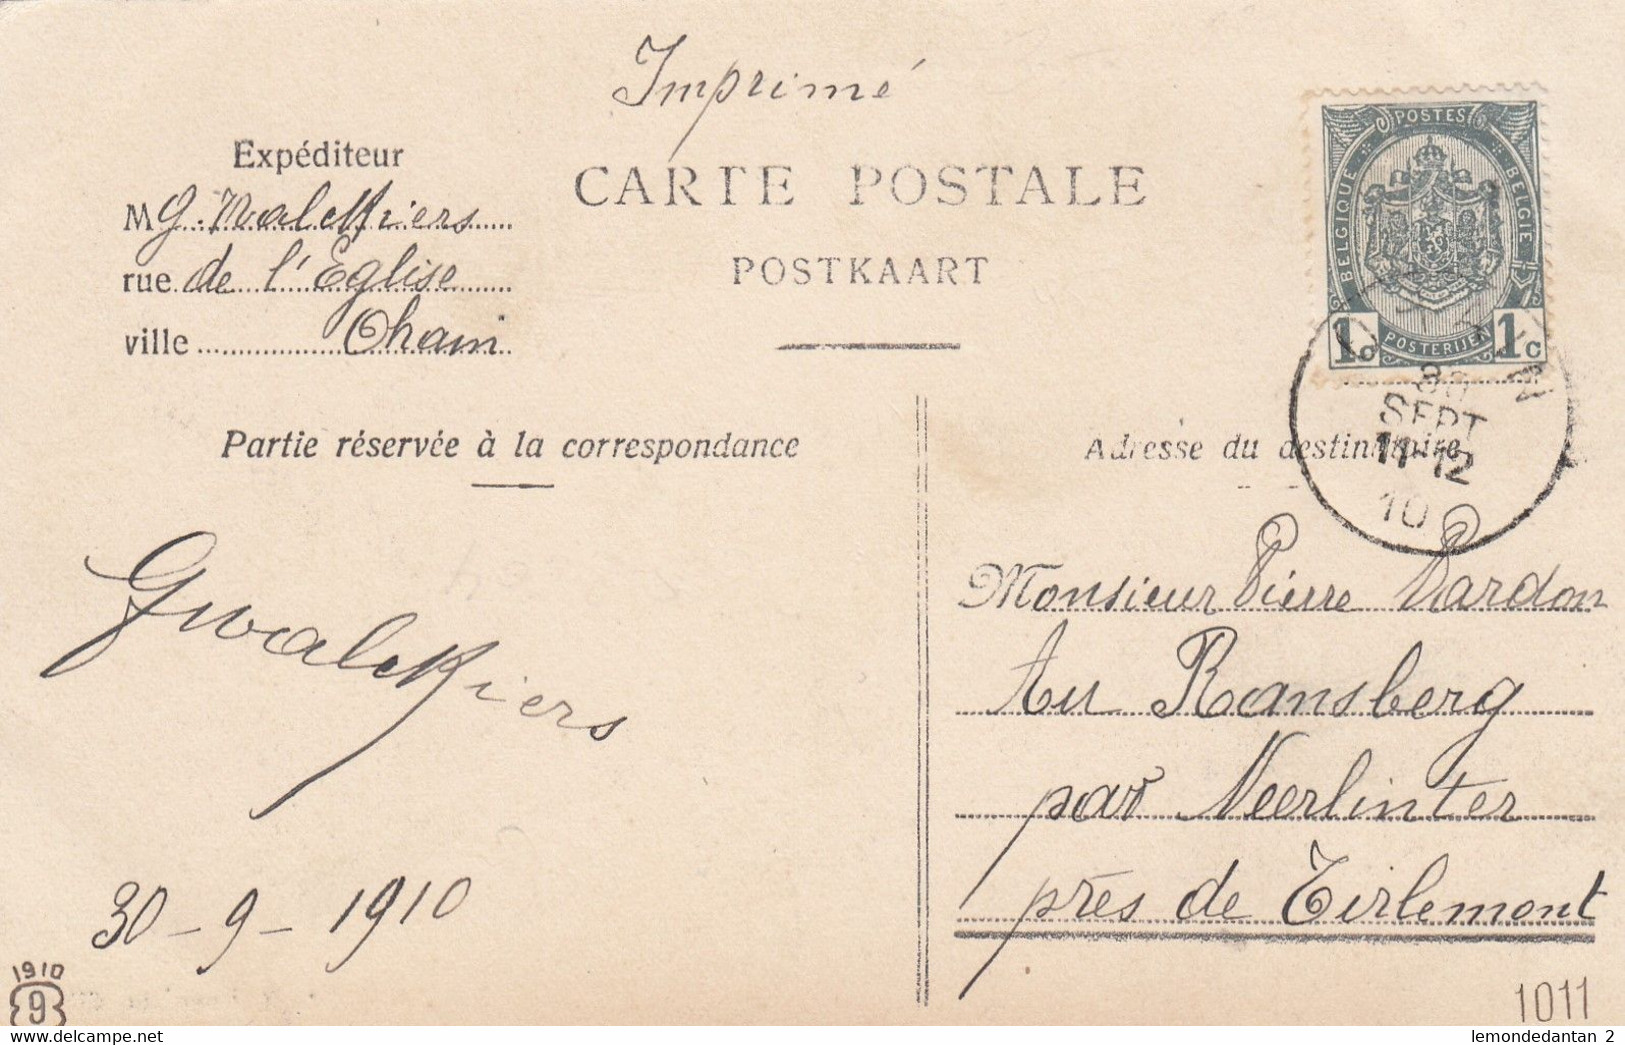 Imprimé
Expéditeur
M G. Walckiers
rue de l'Eglise
ville Ohain
CARTE POSTALE
POSTKAART
POSTES
BELGIQUE
BELGIE
1c POSTERIJEN 1c
30
SEPT
11-12
10
Partie réservée à la correspondance
Adresse du destinataire
GWalckiers
30-9-1910
Monsieur Pierre Dardon
Au Ransberg
par Neerlinter
près de Tirlemont
1910
9
1011
lemondedantan 2